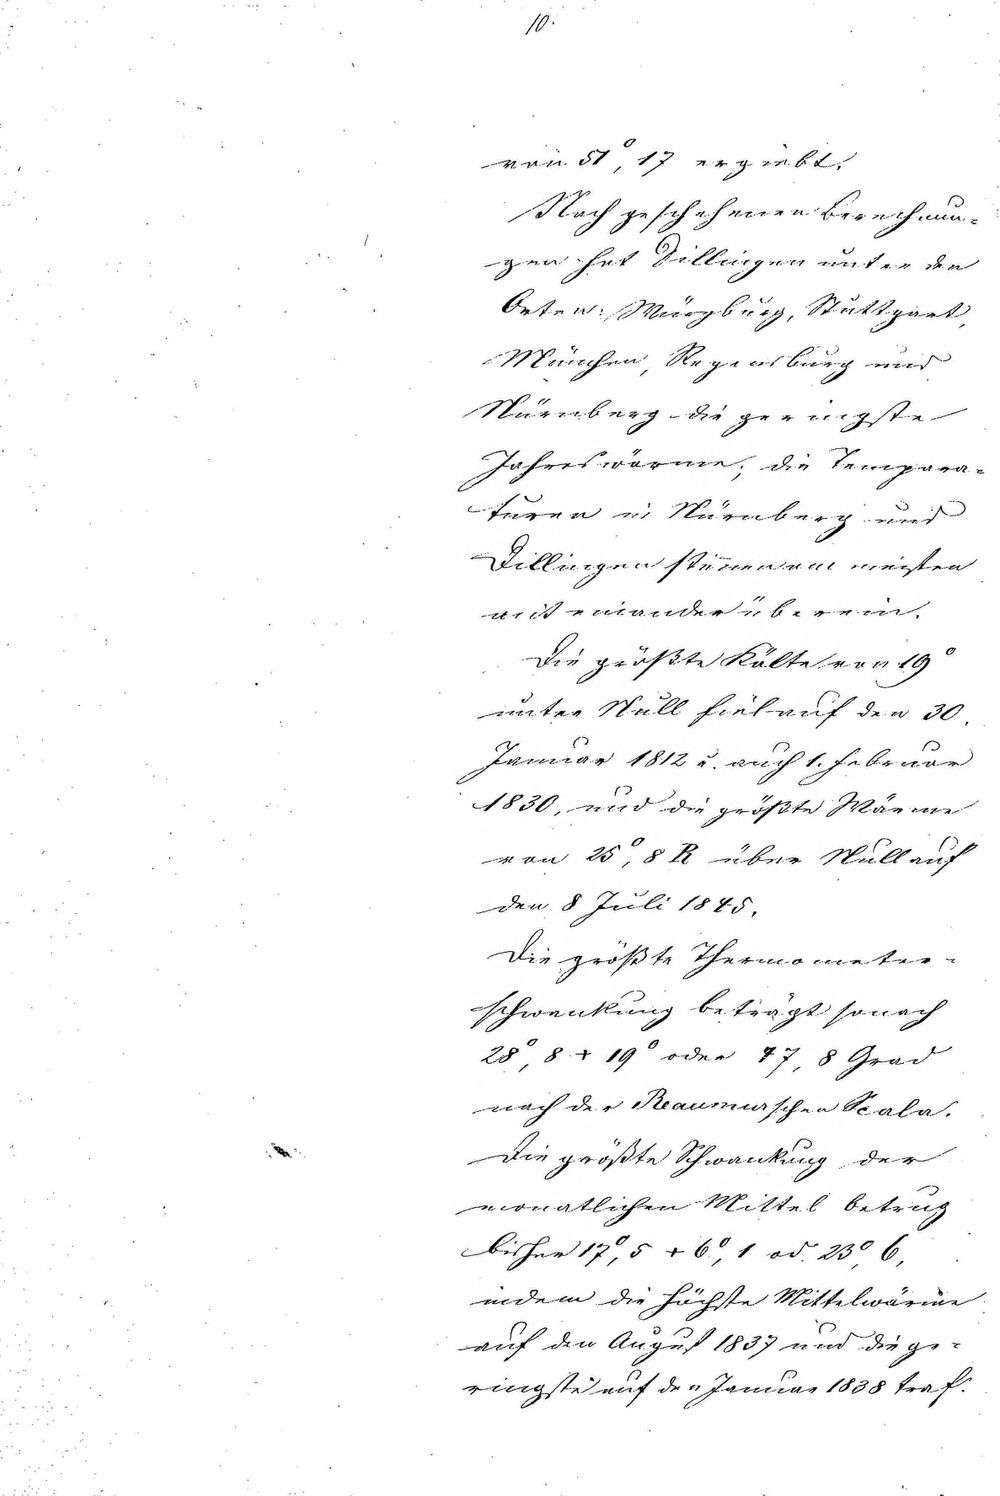 10.
von 51°,17 ergiebt.
Nach geschehenen Berechnun-
gen hat Dillingen unter den
Orten: Würzburg, Stuttgart,
München, Regensburg und
Nürnberg die geringste
Jahreswärme; die Tempara-
turen in Nürnberg und
Dillingen stimen am meisten
mit einander überein.
Die größte Kälte von 19°
unter Null fiel auf den 30.
Januar 1812 u. auch 1. Februar
1830, und die größte Wärme
von 28°,8 R über Null auf
den 8 Juli 1845.
Die größte Thermometer-
schwankung beträgt sonach
28°,8 + 19° oder 47,8 Grad
nach der Reaumurschen Scala.
Die größte Schwankung der
monatlichen Mittel betrug
bisher 17°,5 + 6°,1 od. 23°,6,
indem die höchste Mittelwärme
auf den August 1837 und die ge-
ringste auf den Januar 1838 traf.